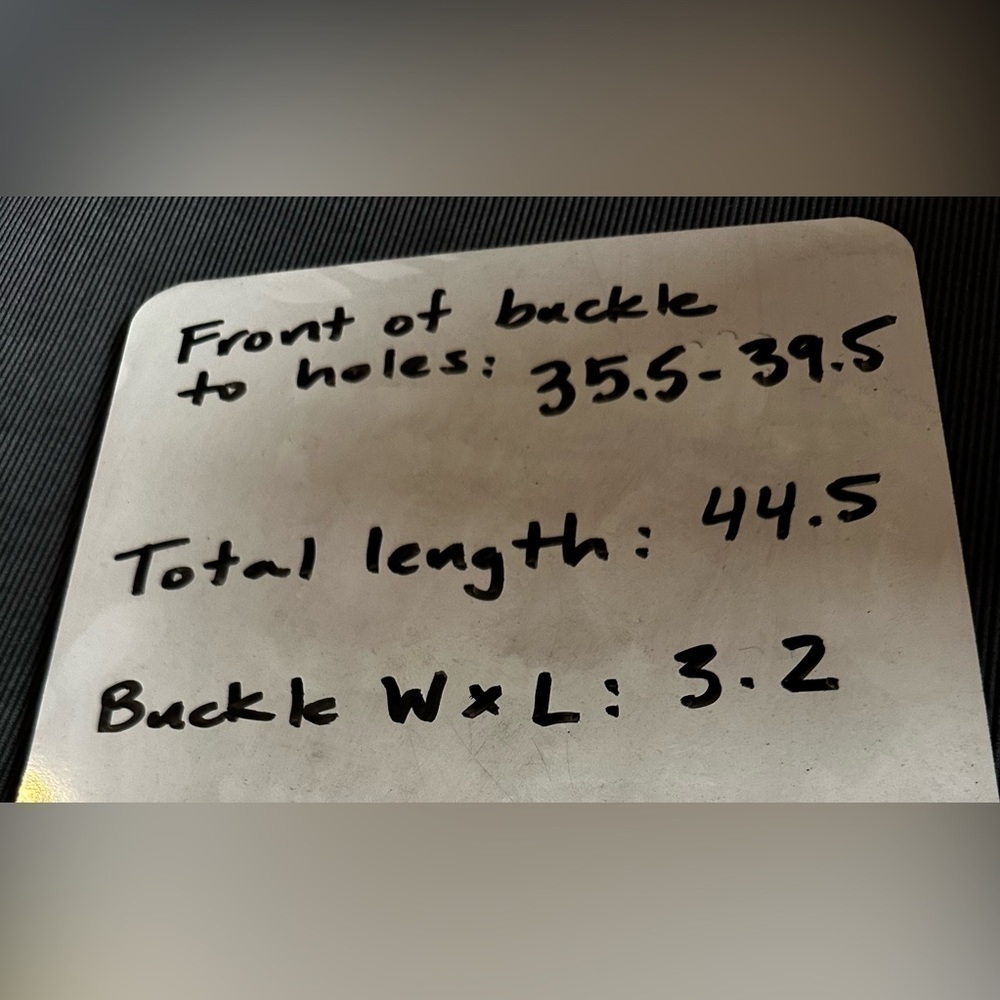 Front of buckle
to holes: 35.5-39.5
Total length: 44.5
Buckle W x L: 3.2